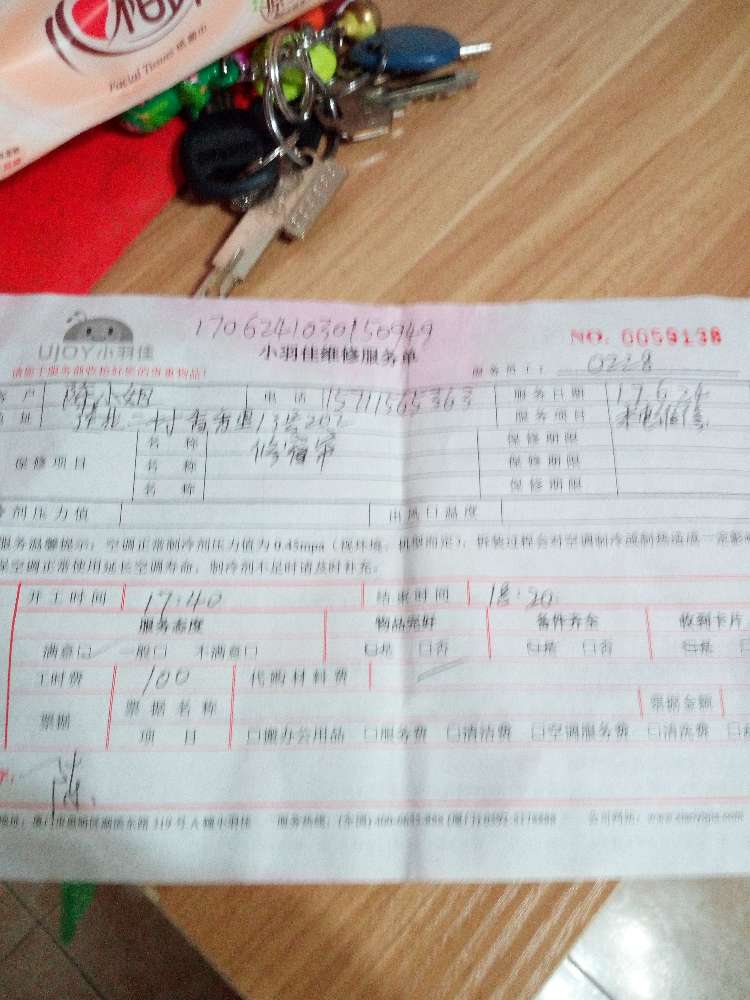 Facial Tissue
1706241030150949
UJOY小羽佳
小羽佳维修服务单
NO. 0059138
服务员工: 0228
客户 陈小姐 电话 15711565363 服务日期 17.6.24
二村 13号 服务项目
保修项目 名称 保修期限
名称 保修期限
名称 保修期限
剂压力值 出风口温度
服务温馨提示:空调正常制冷剂压力值为0.45mpa(视环境、机型而定),拆装过程会对空调制冷或制热造成一定影
保空调正常使用延长空调寿命,制冷剂不足时请及时补充。
开工时间 17:40 结束时间 18:20
服务态度 物品完好 备件齐全 收到卡片
满意口 一般口 不满意口 口是 口否 口是 口否 口是
工时费 100 代购材料费
票据 票据名称 票据金额
项目 口服务费 口清洁费 口空调服务费 口清洗费
陈